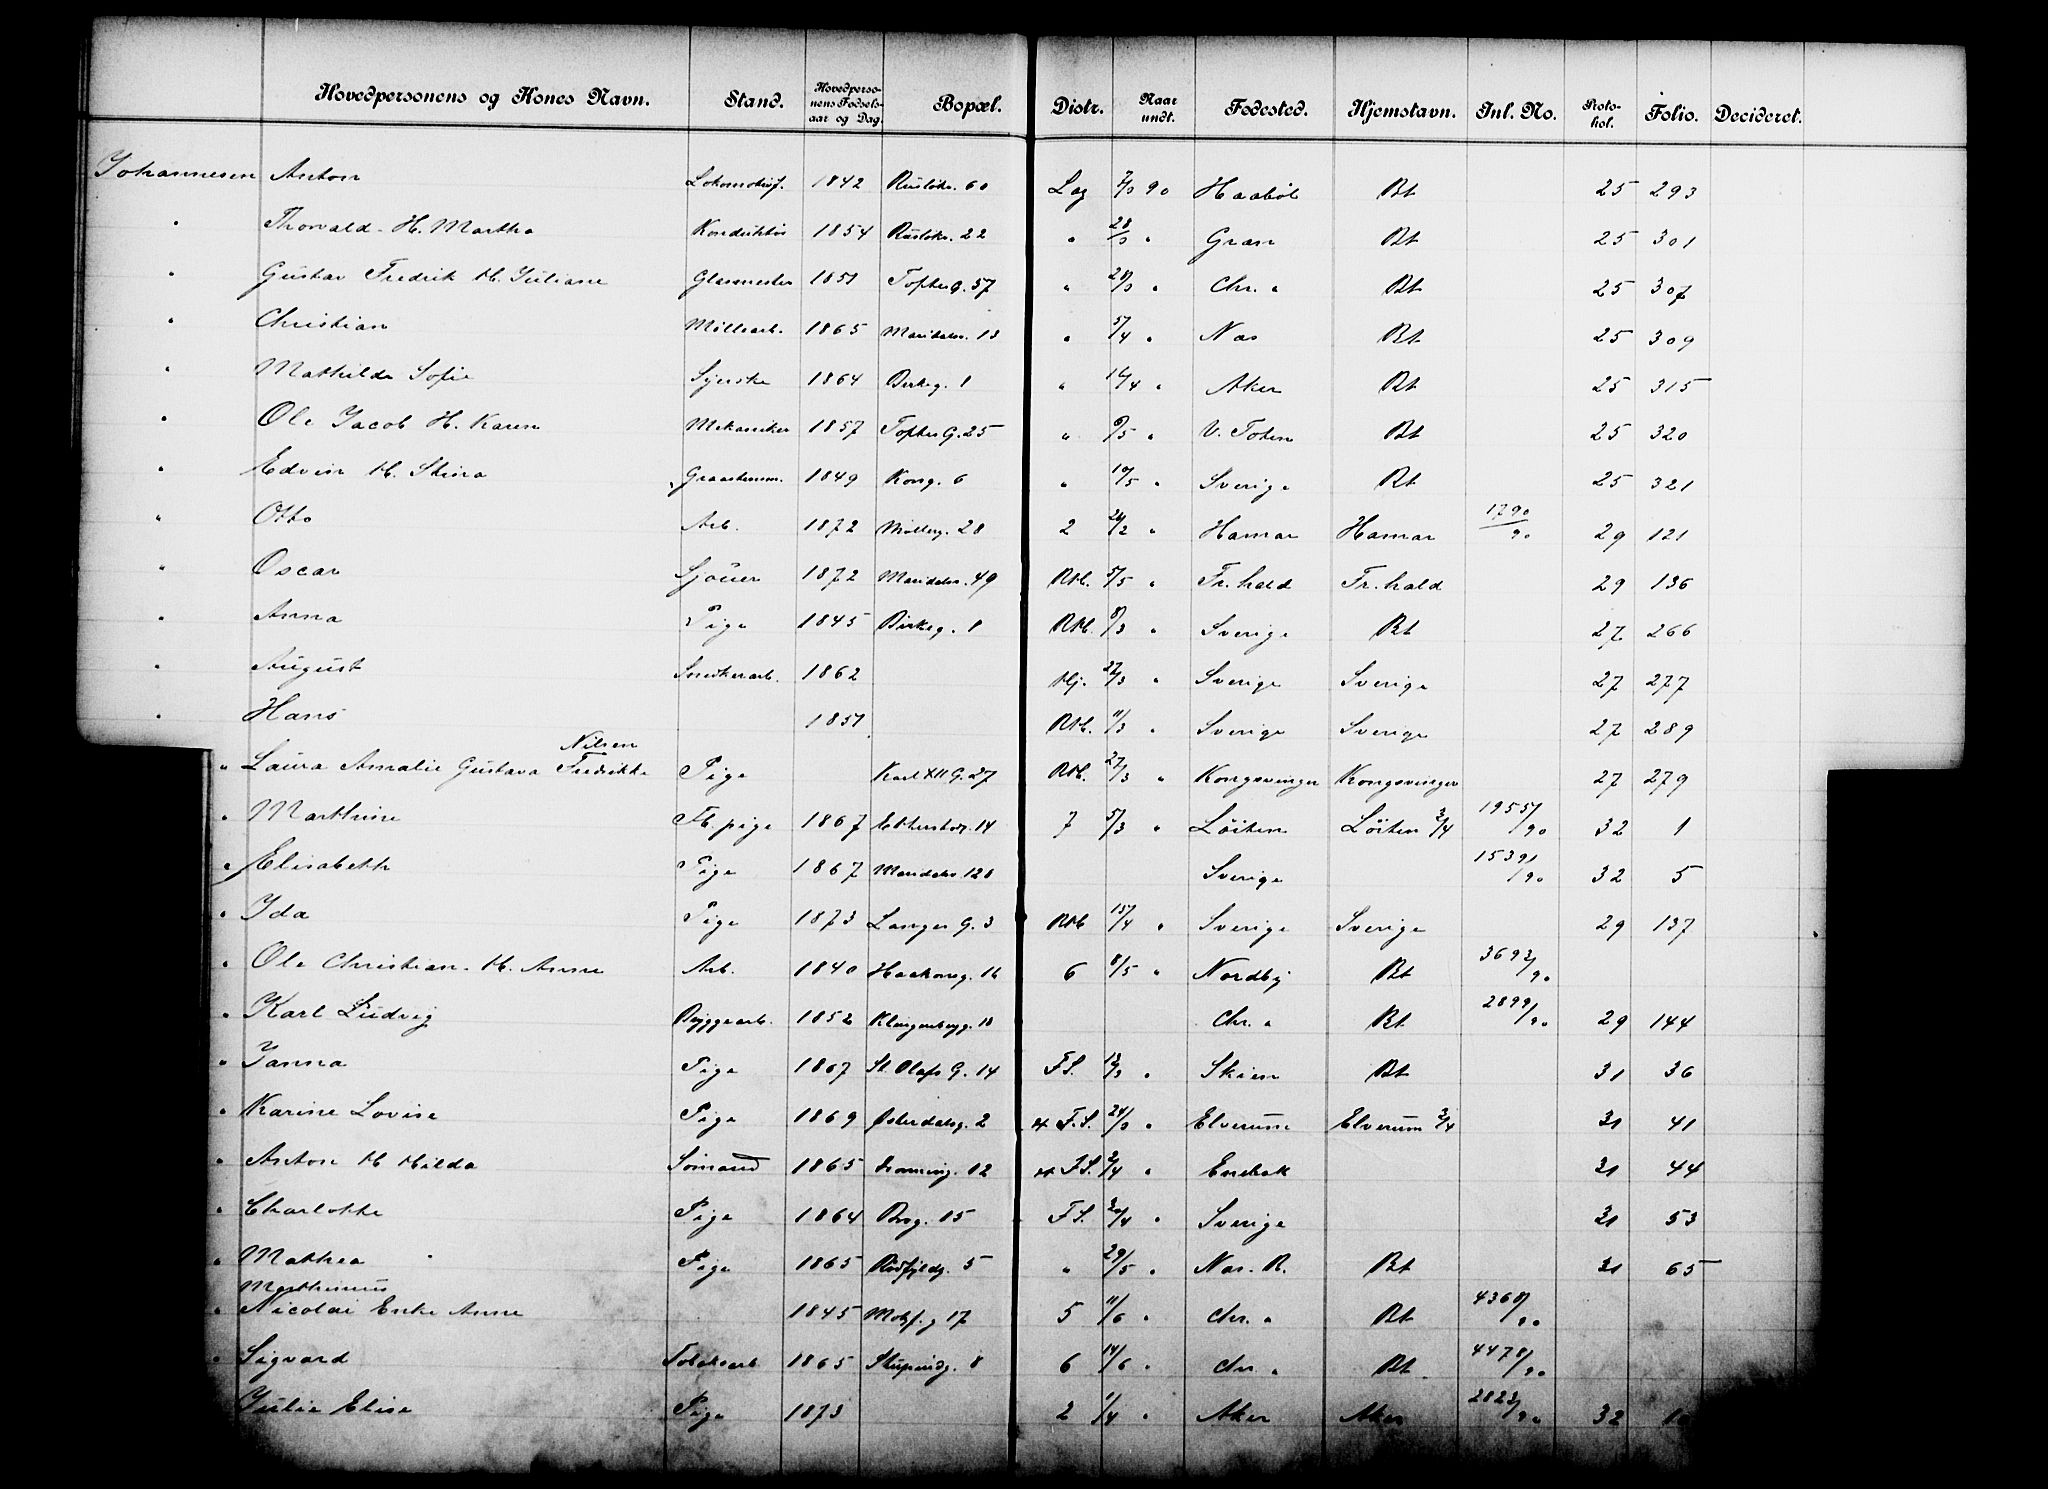 Hovedpersonens og Kones Navn. Stand. Hovedperso- nens Fødsels- aar og Dag. Bopæl. Distr. Naar undt. Fødested. Hjemstavn. Jnl. No. Proto- kol. Folio. Decideret.
Johannesen Anton Lokomotivf. 1842 Rusløkv. 60 Lag 90 Haabøl Bt 25 293
" Thorvald - H. Martha Konduktør 1854 Rusløkv. 22 " 28/3 " Gran Bt 25 301
" Gustav Fredrik H. Juliane Glasmester 1851 Toftes G. 57 " 28/3 " Chr. a Bt 25 307
" Christian Møllearb. 1865 Maridalsv. 13 " 5/4 " Nes Bt 25 309
" Mathilde Sofie Syerske 1864 Birkeg. 1 " 12/4 " Aker Bt 25 315
" Ole Jacob H. Karen Mekaniker 1857 Toftes G. 25 " 9/5 " V. Toten Bt 25 320
" Edvin H. Stina Graastensm. 1849 Kong. 6 " 10/5 " Sverige Bt 25 321
" Otto Arb. 1872 Møllerg. 28 2 24/2 " Hamar Hamar 1790/90 29 121
" Oscar Sjouer 1872 Maridalsv. 49 RH. 5/5 " Fr.hald Fr.hald 29 136
" Anna Pige 1845 Birkeg. 1 RH. 8/3 " Sverige Bt 27 266
" August Snedkerarb. 1862 Hj. 22/3 " Sverige Sverige 27 277
" Hans 1851 RH. 11/3 " Sverige Sverige 27 289
Nilsen
" Laura Amalie Gustava Fredrikke Pige Karl XII G. 27 RH. 27/3 " Kongsvinger Kongsvinger 27 279
" Marthine Fb. pige 1867 14 7 5/3 " Løiten Løiten 3/4 1955/90 32 1
" Elisabeth Pige 1867 Maridalsv 128 Sverige 1539/90 32 5
" Ida Pige 1873 Langes G. 3 RH 15/4 " Sverige Sverige 29 137
" Ole Christian - H. Anne Arb. 1840 Haakonsg. 16 6 8/5 " Nordby Bt 3692/90
" Karl Ludvig Byggearb. 1852 Klingenbergg. 18 Chr. a Bt 2899/90 29 144
" Janna Pige 1867 St. Olafs G. 14 FS. 13/3 " Skien Bt 31 36
" Karine Lovise Pige 1869 Østerdalsg. 2 F.S. 24/3 " Elverum Elverum 3/4 31 41
" Anton H Hilda Sømand 1865 12 FS. 2/4 " Enebak 31 44
" Charlotte Pige 1864 Brog. 15 FS. 30/4 " Sverige 31 53
" Mathea Pige 1865 5 " 29/5 " Nes. R. Bt 31 65
Marthinius
" Nicolai Enke Anne 1845 17 5 11/6 " Chr. a Bt 4368/90
" Sigvard Tobaksarb 1865 Stupindg. 8 6 14/6 " Chr. a Bt 4478/90
Julie Elise Pige 1873 2 1/4 " Aker Aker 2823/90 32